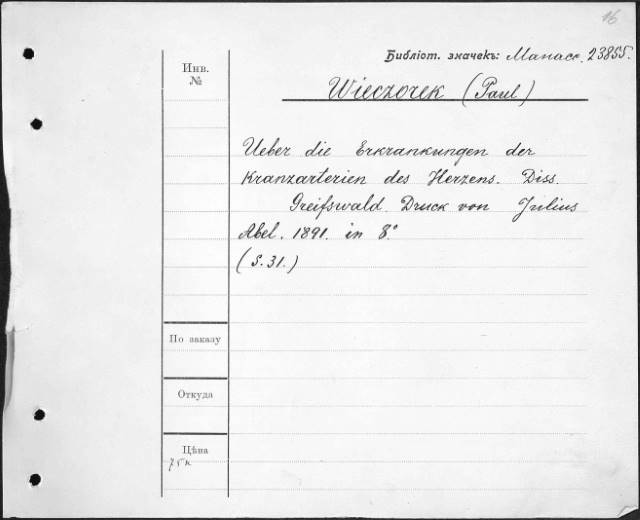 16
Библіот. значекъ: Манасс. 23855.
Инв.
№
Wieczorek (Paul)
Ueber die Erkrankungen der
Kranzarterien des Herzens. Diss.
Greifswald. Druck von Julius
Abel. 1891. in 8°
(S. 31.)
По заказу
Откуда
Цѣна
75к